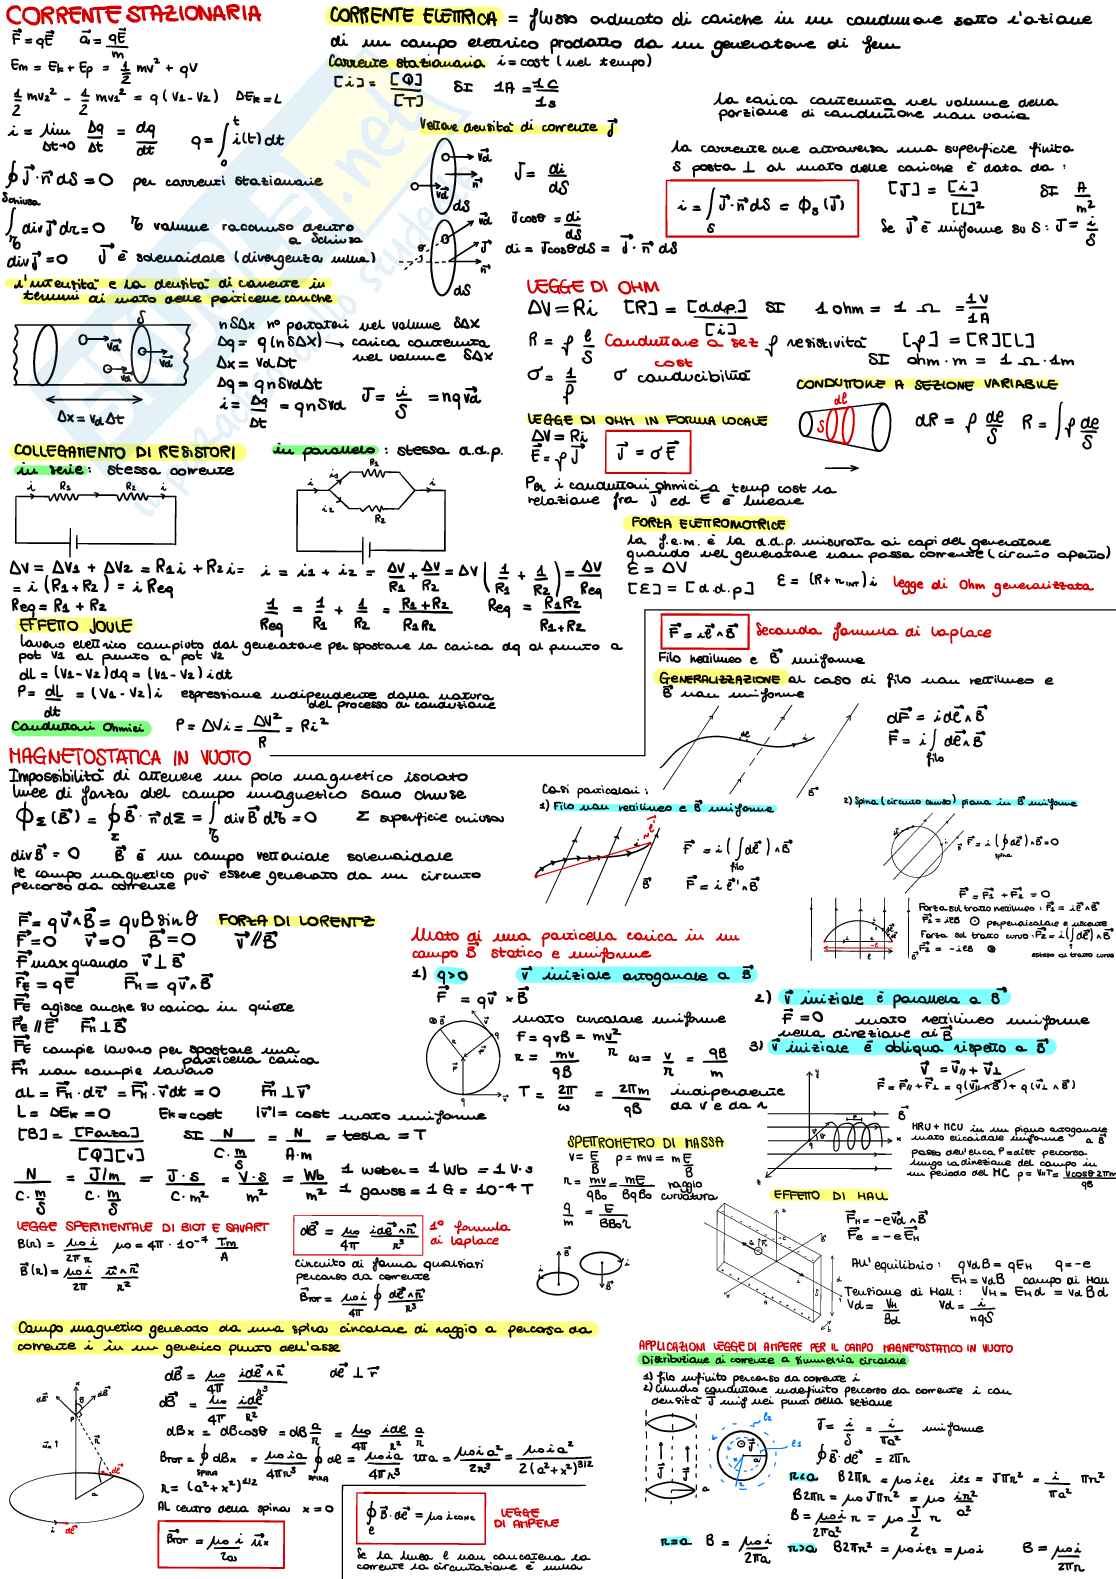 CORRENTE STAZIONARIA
F⃗ = qE⃗   a⃗ = qE⃗/m
Em = Ek + Ep = 1/2 mv² + qV
1/2 mv2² - 1/2 mv1² = q(V1-V2)   ΔEk = L
i = lim Δt→0 Δq/Δt = dq/dt   q = ∫₀ᵗ i(t)dt
∮ J⃗·n⃗ dS = 0 per correnti stazionarie
S chiusa
∫ div J⃗ dτ = 0   τ volume racchiuso dentro a S chiusa
div J⃗ = 0   J⃗ è solenoidale (divergenza nulla)
L'intensità e la densità di corrente in
termini di moto delle particelle cariche
nSΔx n° portatori nel volume SΔx
Δq = q(nSΔx) → carica contenuta nel volume SΔx
Δx = vdΔt
Δq = qnSvdΔt
i = Δq/Δt = qnSvd   J⃗ = i/S = nqv⃗d
Δx = vdΔt
CORRENTE ELETTRICA = flusso ordinato di cariche in un conduttore sotto l'azione
di un campo elettrico prodotto da un generatore di fem
Corrente stazionaria i = cost (nel tempo)
[i] = [Q]/[T]   SI   1A = 1C/1s
Vettore densità di corrente J⃗
J = di/dS
Jcosθ = di/dS
di = JcosθdS = J⃗·n⃗ dS
la carica contenuta nel volume della
porzione di conduttore non varia
la corrente che attraversa una superficie finita
S posta ⊥ al moto delle cariche è data da:
i = ∫ J⃗·n⃗ dS = Φs(J⃗)
[J] = [i]/[L]²   SI   A/m²
Se J⃗ è uniforme su S: J = i/S
LEGGE DI OHM
ΔV = Ri   [R] = [d.d.p.]/[i]   SI   1 ohm = 1 Ω = 1V/1A
R = ρ l/S Conduttore a sez cost   ρ resistività   [ρ] = [R][L]
SI ohm·m = 1 Ω·1m
σ = 1/ρ   σ conducibilità
CONDUTTORE A SEZIONE VARIABILE
dR = ρ dl/S   R = ∫ρ dl/S
LEGGE DI OHM IN FORMA LOCALE
ΔV = Ri
E⃗ = ρJ⃗   J⃗ = σE⃗
Per i conduttori ohmici a temp cost la
relazione fra J⃗ ed E⃗ è lineare
COLLEGAMENTO DI RESISTORI
in serie: stessa corrente
in parallelo: stessa d.d.p.
ΔV = ΔV1 + ΔV2 = R1i + R2i =
= i(R1+R2) = i Req
Req = R1 + R2
i = i1 + i2 = ΔV/R1 + ΔV/R2 = ΔV(1/R1 + 1/R2) = ΔV/Req
1/Req = 1/R1 + 1/R2 = R1+R2/R1R2   Req = R1R2/R1+R2
FORZA ELETTROMOTRICE
la f.e.m. è la d.d.p. misurata ai capi del generatore
quando nel generatore non passa corrente (circuito aperto)
ℰ = ΔV
[ℰ] = [d.d.p]   ℰ = (R + r INT)i   legge di Ohm generalizzata
EFFETTO JOULE
lavoro elettrico compiuto dal generatore per spostare la carica dq al punto a
pot V1 al punto a pot V2
dL = (V1-V2)dq = (V1-V2)idt
P = dL/dt = (V1-V2)i   espressione indipendente dalla natura
del processo di conduzione
Conduttori Ohmici   P = ΔVi = ΔV²/R = Ri²
F⃗ = il⃗∧B⃗   Seconda formula di laplace
Filo rettilineo e B⃗ uniforme
GENERALIZZAZIONE al caso di filo non rettilineo e
B⃗ non uniforme
dF⃗ = idl⃗∧B⃗
F⃗ = i∫dl⃗∧B⃗
filo
Casi particolari:
1) Filo non rettilineo e B⃗ uniforme
F⃗ = i(∫dl⃗)∧B⃗
filo
F⃗ = i l⃗'∧B⃗
2) Spira (circuito chiuso) piana in B⃗ uniforme
F⃗ = i(∮dl⃗)∧B⃗ = 0
spira
F⃗ = F⃗1 + F⃗2 = 0
Forza sul tratto rettilineo: F⃗1 = il⃗∧B⃗
F⃗1 = ilB ⊙ perpendicolare e uscente
Forza sul tratto curvo: F⃗2 = i(∫dl⃗)∧B⃗
F⃗2 = -ilB ⊗ esteso al tratto curvo
MAGNETOSTATICA IN VUOTO
Impossibilità di ottenere un polo magnetico isolato
linee di forza del campo magnetico sono chiuse
ΦΣ(B⃗) = ∮ B⃗·n⃗ dΣ = ∫ div B⃗ dτ = 0   Σ superficie chiusa
div B⃗ = 0   B⃗ è un campo vettoriale solenoidale
Il campo magnetico può essere generato da un circuito
percorso da corrente
F⃗ = qv⃗∧B⃗ = qvBsinθ   FORZA DI LORENTZ
F⃗ = 0   v⃗ = 0   B⃗ = 0   v⃗ // B⃗
F⃗ max quando v⃗ ⊥ B⃗
F⃗E = qE⃗   F⃗M = qv⃗∧B⃗
F⃗E agisce anche su carica in quiete
F⃗E // E⃗   F⃗M ⊥ B⃗
F⃗E compie lavoro per spostare una
particella carica
F⃗M non compie lavoro
dL = F⃗M·dr⃗ = F⃗M·v⃗dt = 0   F⃗M ⊥ v⃗
L = ΔEk = 0   Ek = cost   |v⃗| = cost moto uniforme
[B] = [Forza]/[Q][v]   SI   N/C·m/s = N/A·m = tesla = T
N/C·m/s = J/m/C·m/s = J·s/C·m² = V·s/m² = Wb/m²   1 weber = 1 Wb = 1 V·s
1 gauss = 1 G = 10⁻⁴ T
Moto di una particella carica in un
campo B⃗ statico e uniforme
1) q>0   v⃗ iniziale ortogonale a B⃗
F⃗ = qv⃗ × B⃗
moto circolare uniforme
F = qvB = mv²/r
r = mv/qB   ω = v/r = qB/m
T = 2π/ω = 2πm/qB   indipendente
da v e da r
2) v⃗ iniziale è parallela a B⃗
F⃗ = 0   moto rettilineo uniforme
nella direzione di B⃗
3) v⃗ iniziale è obliqua rispetto a B⃗
v⃗ = v⃗// + v⃗⊥
F⃗ = F⃗// + F⃗⊥ = q(v⃗//∧B⃗) + q(v⃗⊥∧B⃗)
MRU + MCU in un piano ortogonale a B⃗
moto elicoidale uniforme
passo dell'elica P = dist percorsa
lungo la direzione del campo in
un periodo del MC p = v//T = vcosθ2πm/qB
SPETTROMETRO DI MASSA
v = E/B   p = mv = mE/B
r = mv/qB0 = mE/BqB0   raggio curvatura
q/m = E/BB0r
EFFETTO DI HALL
F⃗M = -ev⃗d∧B⃗
F⃗e = -eE⃗H
All'equilibrio: qvdB = qEH   q = -e
EH = vdB campo di Hall
Tensione di Hall: VH = EHd = vdBd
vd = VH/Bd   vd = i/nqS
LEGGE SPERIMENTALE DI BIOT E SAVART
B(r) = μ0i/2πr   μ0 = 4π·10⁻⁷ Tm/A
B⃗(r) = μ0i/2π u⃗∧r⃗/r²
dB⃗ = μ0/4π idl⃗∧r⃗/r³   1° formula di laplace
circuito di forma qualsiasi
percorso da corrente
B⃗TOT = μ0i/4π ∮ dl⃗∧r⃗/r³
Campo magnetico generato da una spira circolare di raggio a percorsa da
corrente i in un generico punto dell'asse
dB⃗ = μ0/4π idl⃗∧r⃗/r³   dl⃗ ⊥ r⃗
dB⃗ = μ0/4π idl⃗/r²
dBx = dBcosθ = dB a/r = μ0/4π idl/r² a/r
BTOT = ∮ dBx = μ0ia/4πr³ ∮ dl = μ0ia/4πr³ 2πa = μ0ia²/2r³ = μ0ia²/2(a²+x²)^3/2
r = (a²+x²)^1/2
AL centro della spira x = 0
B⃗TOT = μ0 i/2a u⃗x
∮ B⃗·dl⃗ = μ0 i conc   LEGGE DI AMPERE
Se la linea l non concatena la
corrente la circuitazione è nulla
APPLICAZIONI LEGGE DI AMPERE PER IL CAMPO MAGNETOSTATICO IN VUOTO
Distribuzione di corrente a simmetria circolare
1) filo infinito percorso da corrente i
2) Cilindro conduttore indefinito percorso da corrente i con
densità J⃗ unif nei punti della sezione
J = i/S = i/πa²   uniforme
∮ B⃗·dl⃗ = 2πr
r<a   B2πr = μ0 il1   il1 = Jπr² = i/πa² πr²
B2πr = μ0Jπr² = μ0 ir²/a²
B = μ0i/2πa² r = μ0 J/2 r
r=a   B = μ0i/2πa   r>a   B2πr² = μ0il2 = μ0i   B = μ0i/2πr